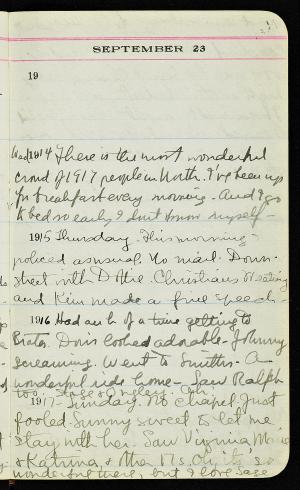 SEPTEMBER 23
19
Wed 1914 There is the most wonderful
crowd of 1917 people in North. I've been up
for breakfast every morning. And I go
to bed so early, I don't know myself-
1915 Thursday. This morning
policed as usual. No mail. Down-
street with Dottie. Christians Meeting
and Kim made a fine speech-
1916 Had an h of a time getting to
Doris looked adorable- Johnny
screaming. Went to Smiths. A
wonderful ride home- Saw Ralph
too.
1917- Sunday. No Chapel. Just
fooled. Sunny sweet to let me
stay with her. Saw Virginia,
& Katrina, & other
wonderful there, but I love Sage